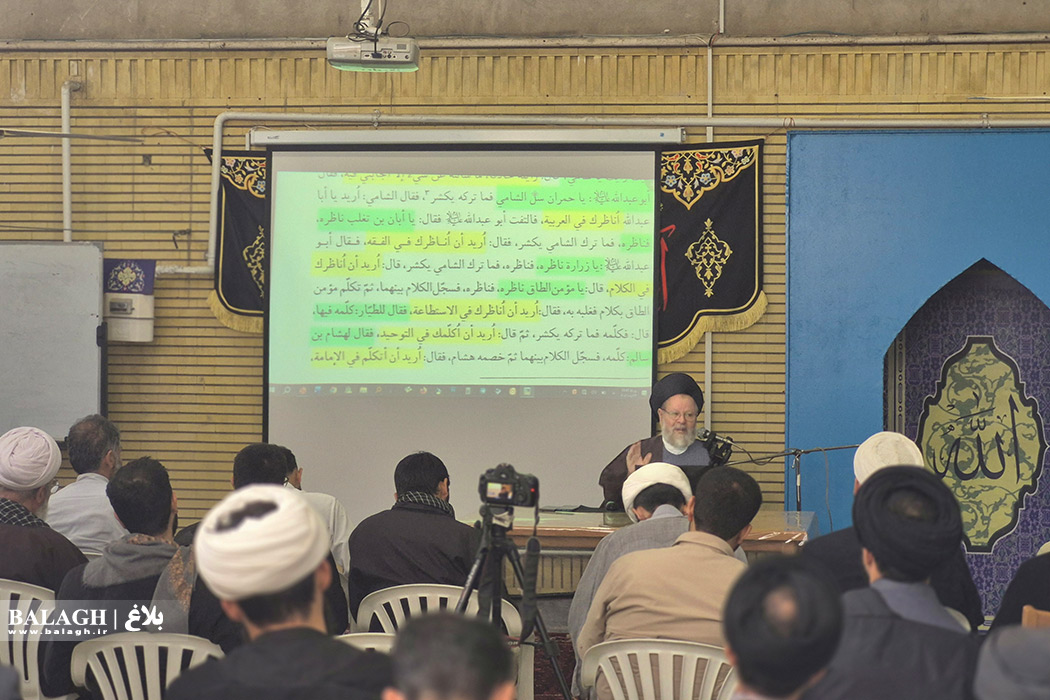 أبو عبدالله ﷺ: يا حمران سل الشامي فما تركه يكشر٣، فقال الشامي: أريد يا أبا
عبدالله أناظرك في العربية، فالتفت أبو عبدالله ﷺ فقال: يا أبان بن تغلب ناظره،
فناظره، فما ترك الشامي يكشر، فقال: أريد أن أناظرك في الفقه، فقال أبو
عبدالله ﷺ: يا زرارة ناظره، فناظره، فما ترك الشامي يكشر، قال: أريد أن أناظرك
في الكلام، قال: يا مؤمن الطاق ناظره، فناظره، فسجّل الكلام بينهما، ثمّ تكلّم مؤمن
الطاق بكلام فغلبه به، فقال: أريد أن أناظرك في الاستطاعة، فقال للطيّار: كلّمه فيها،
قال: فكلّمه فما تركه يكشر، ثمّ قال: أريد أن أُكلّمك في التوحيد، فقال لهشام بن
سالم: كلّمه، فسجّل الكلام بينهما ثمّ خصمه هشام، فقال: أريد أن أتكلّم في الإمامة،
الله
BALAGH بلاغ
www.balagh.ir